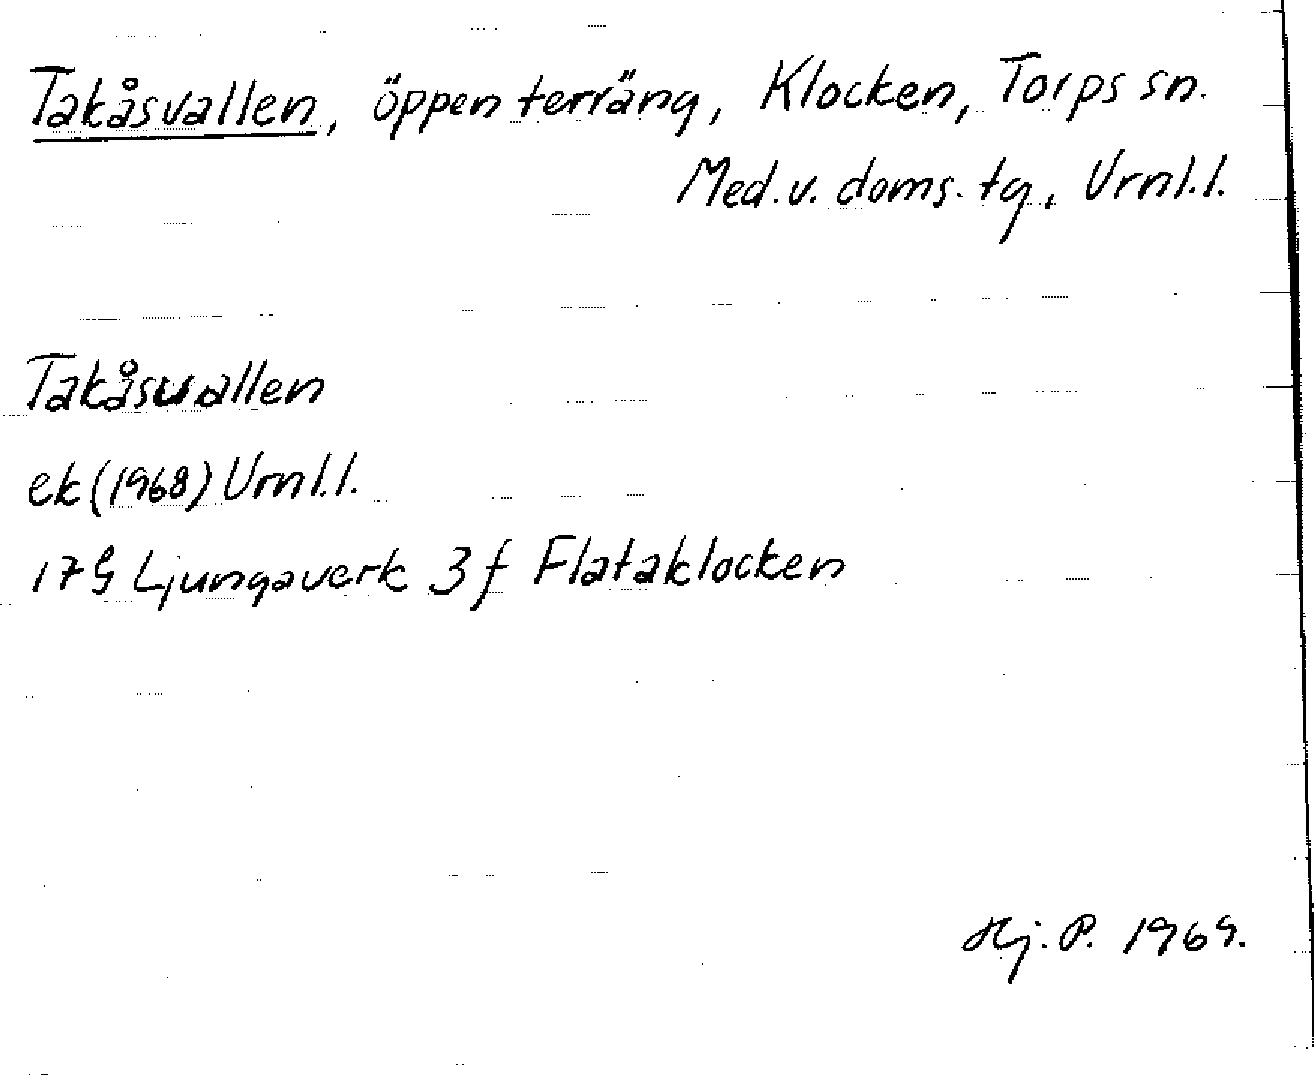 Takåsvallen, öppen terräng, Klocken, Torps sn.
Med. v. doms. tg., Vrnl.l.
Takåsvallen
ek (1968) Vrnl.l.
17G Ljungaverk 3f Flataklocken
Hj. P. 1969.